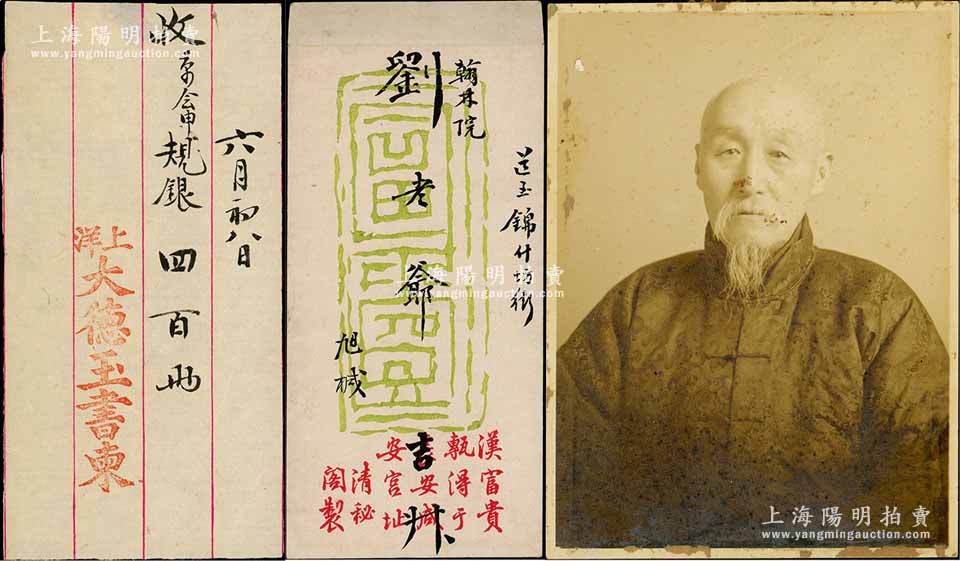 上海陽明拍賣
www.yangmingauction.com
六月初八日
規銀四百兩
上洋
大德玉書柬
上海陽明拍賣
www.yangmingauction.com
送至錦什坊街
翰林院
劉老爺
旭椷
吉
漢富貴
甎得于
安宮址
清秘
閣製
上海陽明拍賣
www.yangmingauction.com